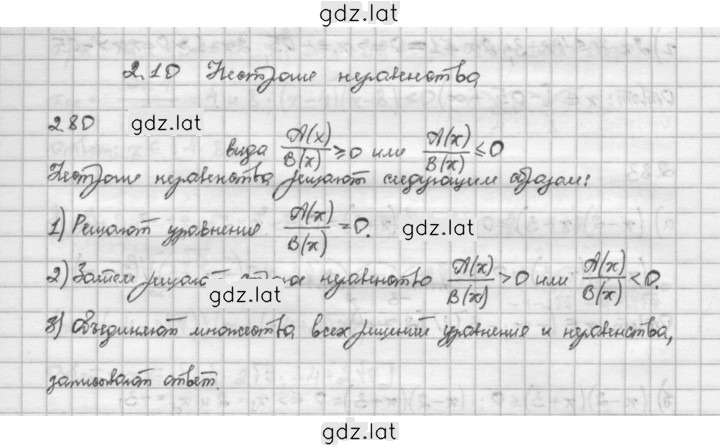 gdz.lat
2.10 Нестрогие неравенства
280
gdz.lat
вида A(x)/B(x) ≥ 0 или A(x)/B(x) ≤ 0
Нестрогие неравенства решают следующим образом:
1) Решают уравнение A(x)/B(x) = 0.
gdz.lat
2) Затем решают неравенство A(x)/B(x) > 0 или A(x)/B(x) < 0.
gdz.lat
3) Объединяют множества всех решений уравнение и неравенства,
записывают ответ
gdz.lat